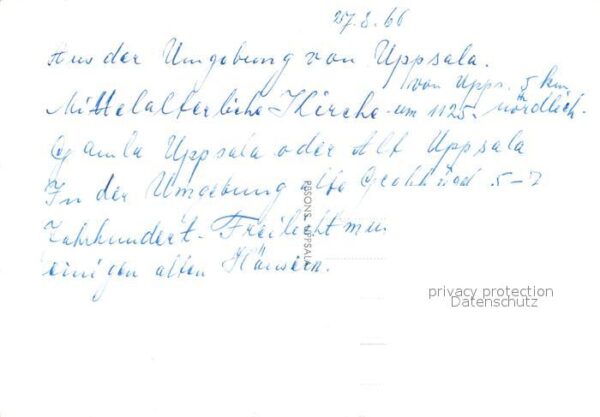 27.8.66
Aus der Umgebung von Uppsala.
von Upps. 5 km
Mittelalterliche-Kirche-um 1125. nördlich.
Gamla Uppsala oder Alt Uppsala
In der Umgebung alte 5-7
Jahrhundert-Freilichtmu
einigen alten Häusern.
UPPSALA
privacy protection
Datenschutz